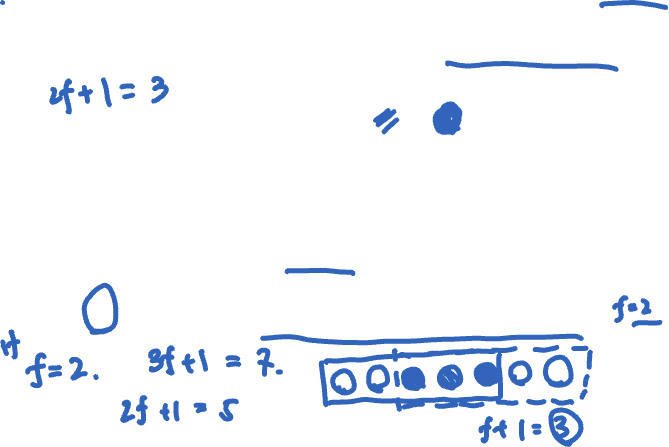 2f+1=3
f=2
f=2. 3f+1=7.
2f+1=5
f+1=3